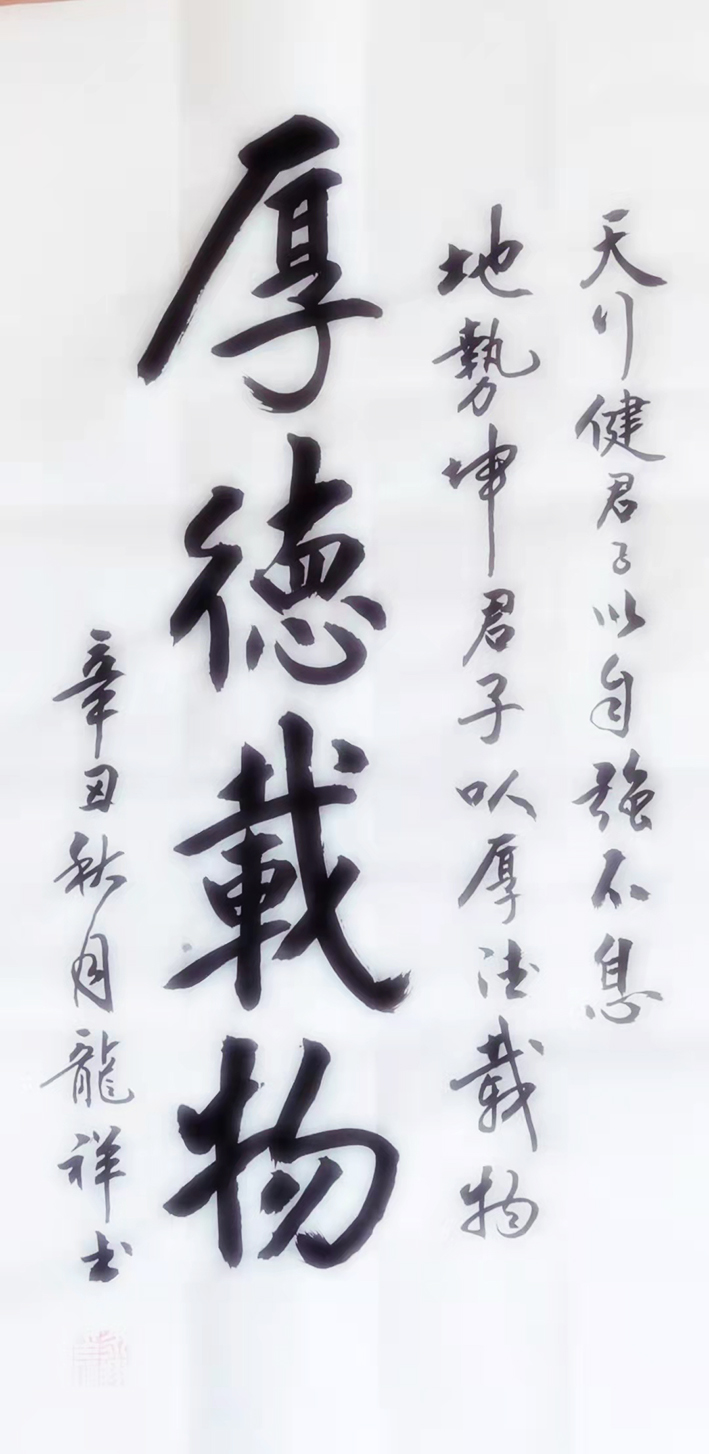 天行健君子以自強不息
地勢坤君子以厚德載物
厚德載物
辛丑秋月龍祥书